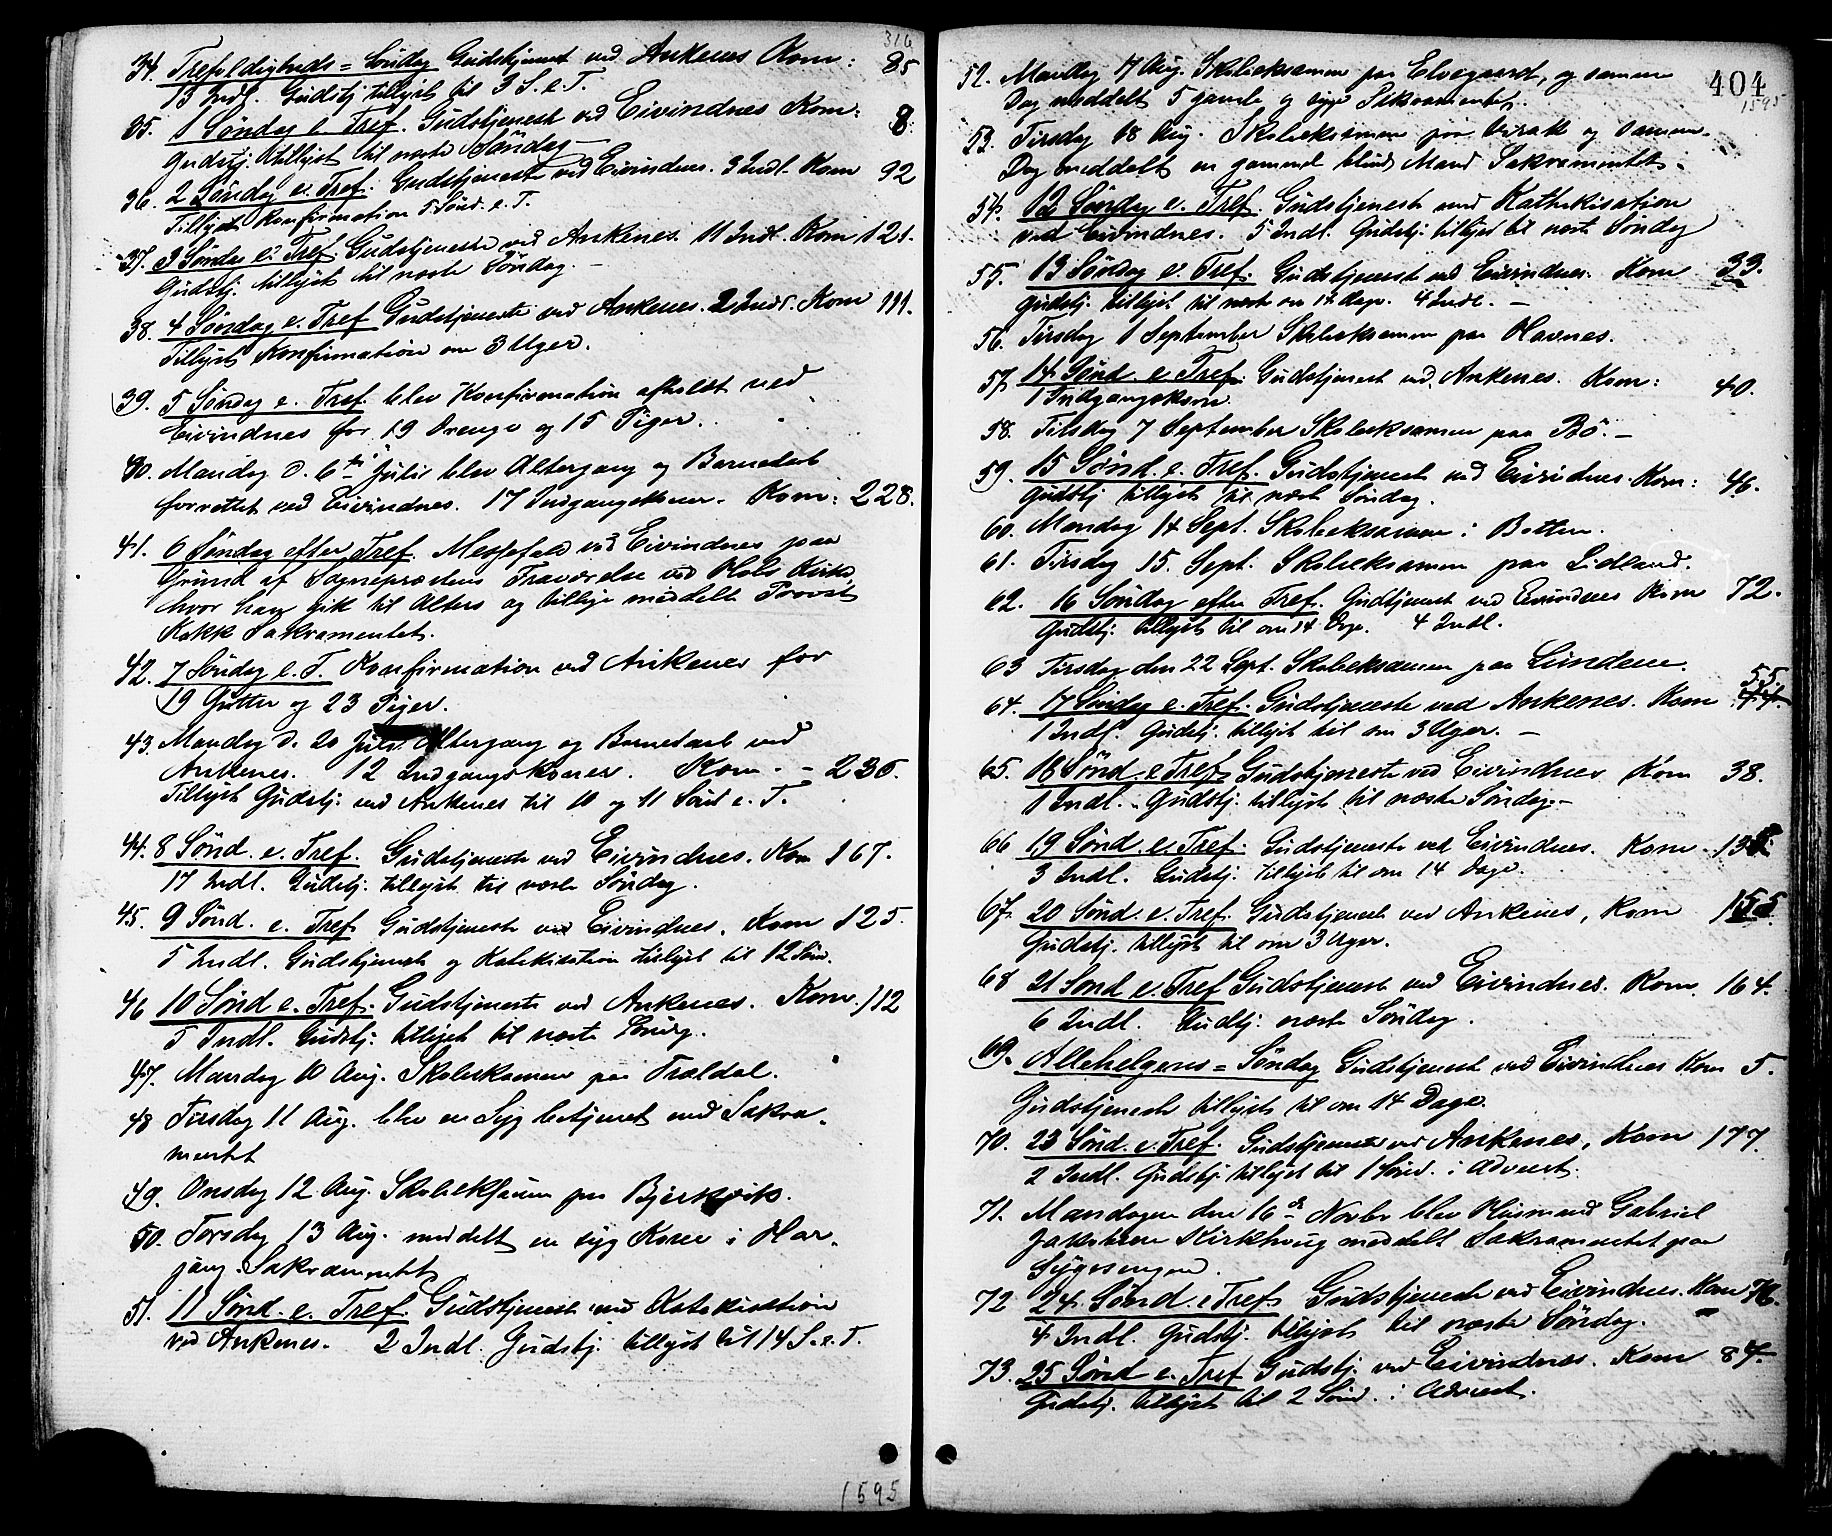 316
34. Trefoldigheds = Søndag Gudstjenest ved Ankenes Kom: 85
13 Indl. Gudstj. tillyst til 3 S. e. T.
35. 1 Søndag e. Tref. Gudstjenest ved Eivindnes Kom: 8.
Gudstj. tillyst til næste Søndag –
36. 2 Søndag e. Tref. Gudstjeneste ved Eivindnes. 3 Indl. Kom 92
Tillyst Konfirmation 5 Sønd. e. T.
37. 3 Søndag e. Tref. Gudstjeneste ved Ankenes. 11 Indl. Kom 121.
Gudstj. tillyst til næste Søndag. –
38. 4 Søndag e. Tref. Gudstjeneste ved Ankenes. 2 Indl. Kom 111.
Tillyst Konfirmation om 3 Uger.
39. 5 Søndag e. Tref. blev Konfirmation afholdt ved
Eivindnes for 19 Drenge og 15 Piger.
40. Mandag d. 6te Juli blev Altergang og Barnedaab
forrettet ved Eivindnes. 17 Indgangskoner. Kom: 228.
41. 6 Søndag efter Tref. Messefald ved Eivindnes paa
Grund af Sognepræstens Fraværelse ved Hols Kirke,
hvor han gik til Alters og tillige meddelte Provst
Kokk Sakramentet.
42. 7 Søndag e. T. Konfirmation ved Ankenes for
19 Gutter og 23 Piger.
43. Mandag d. 20 Juli Altergang og Barnedaab ved
Ankenes. 12 Indgangskoner. Kom. – 236.
Tillyst Gudstj. ved Ankenes til 10 og 11 Sønd e. T.
44. 8 Sønd. e. Tref. Gudstjeneste ved Eivindnes. Kom 167.
17 Indl. Gudstj. tillyst til næste Søndag.
45. 9 Sønd. e. Tref. Gudstjeneste ved Eivindnes. Kom 125.
5 Indl. Gudstjenest og Katekisation tillyst til 12 Sønd.
46 10 Sønd e. Tref. Gudstjeneste ved Ankenes. Kom. 112
5 Indl. Gudstj. tillyst til næste Søndg.
47. Mandag 10 Aug. Skoleeksamen paa Traldal.
48 Tirsdag 11 Aug. blev en Syg betjenet med Sakra-
mentet
49. Onsdag 12 Aug. Skoleeksamen paa Bjerkvik.
50. Torsdag 13 Aug. meddelt en syg Kone i Har-
jang Sakramentet
51. 11 Sønd. e. Tref. Gudstjenest med Katekisation
ved Ankenes. 2 Indl. Gudstj. tillyst til 14 S. e. T.
1595
404
1595
52. Mandag 17 Aug. Skoleeksamen paa Elvegaard, og samme
Dag meddelt 5 gamle og syge Sakramentet.
53. Tirsdag 18 Aug. Skoleeksamen paa Virak og samme
Dag meddelt en gammel blind Mand Sakramentet.
54. 12 Søndag e. Tref. Gudstjeneste med Kathekisation
ved Eivindnes. 5 Indl. Gudstj. tillyst til næste Søndag
55. 13 Søndag e. Tref. Gudstjenest ved Eivindnes. Kom 33.
Gudstj. tillyst til næst om 14 dage. 4 Indl. –
56. Tirsdag 1 September Skoleeksamen paa Havnes.
57. 14 Sønd. e. Tref. Gudstjenest ved Ankenes. Kom: 40.
1 Indgangskone.
58. Tirsdag 7 September Skoleeksamen paa Bø. –
59. 15 Sønd. e. Tref. Gudstjenest ved Eivindnes. Kom: 46.
Gudstj tillyst til næste Søndag.
60. Mandag 14 Sept. Skoleeksamen i Botten.
61. Tirsdag 15. Sept. Skoleeksamen paa Lidland.
62. 16 Søndag efter Tref. Gudstjenest ved Eivindnes Kom 72.
Gudstj. tillyst til om 14 Dage. 4 Indl.
63 Tirsdag den 22 Sept. Skoleeksamen paa Lundene.
64. 17 Søndag e. Tref. Gudstjeneste ved Ankenes. Kom 55.
1 Indl. Gudstj. tillyst til om 3 Uger. –
65. 18 Sønd. e Tref. Gudstjeneste ved Eivindnes Kom 38.
1 Indl. – Gudstj. tillyst til næste Søndag –
66 19 Sønd. e. Tref. Gudstjeneste ved Eivindnes. Kom.
3 Indl. Gudstj. tillyst til om 14 Dage.
67. 20 Sønd. e. Tref. Gudstjenest ved Ankenes, Kom 155.
Gudstj. tillyst til om 3 Uger.
68 21 Sønd e. Tref Gudstjenest ved Eivindnes. Kom. 164.
6 Indl. Gudtj. næste Søndag.
69. Allehelgens = Søndag Gudstjenest ved Eivindnes Kom 5.
Gudstjeneste tillyst til om 14 Dage.
70. 23 Sønd. e. Tref. Gudstjeneste ved Ankenes, Kom 177.
2 Indl. Gudstj. tillyst til 1 Sønd. i Advent.
71. Mandagen den 16de Novbr blev Husmand Gabriel
Jakobsen Kirkhaug meddelt Sakramentet paa
Sygesengen.
72 24 Sønd. e Tref. Gudstjeneste ved Eivindnes. Kom
4 Indl. Gudstj. tillyst til næste Søndag.
73. 25 Sønd e. Tref Gudstj. ved Eivindnes. Kom 84.
Gudstj. tillyst til 2 Sønd. i Advent.